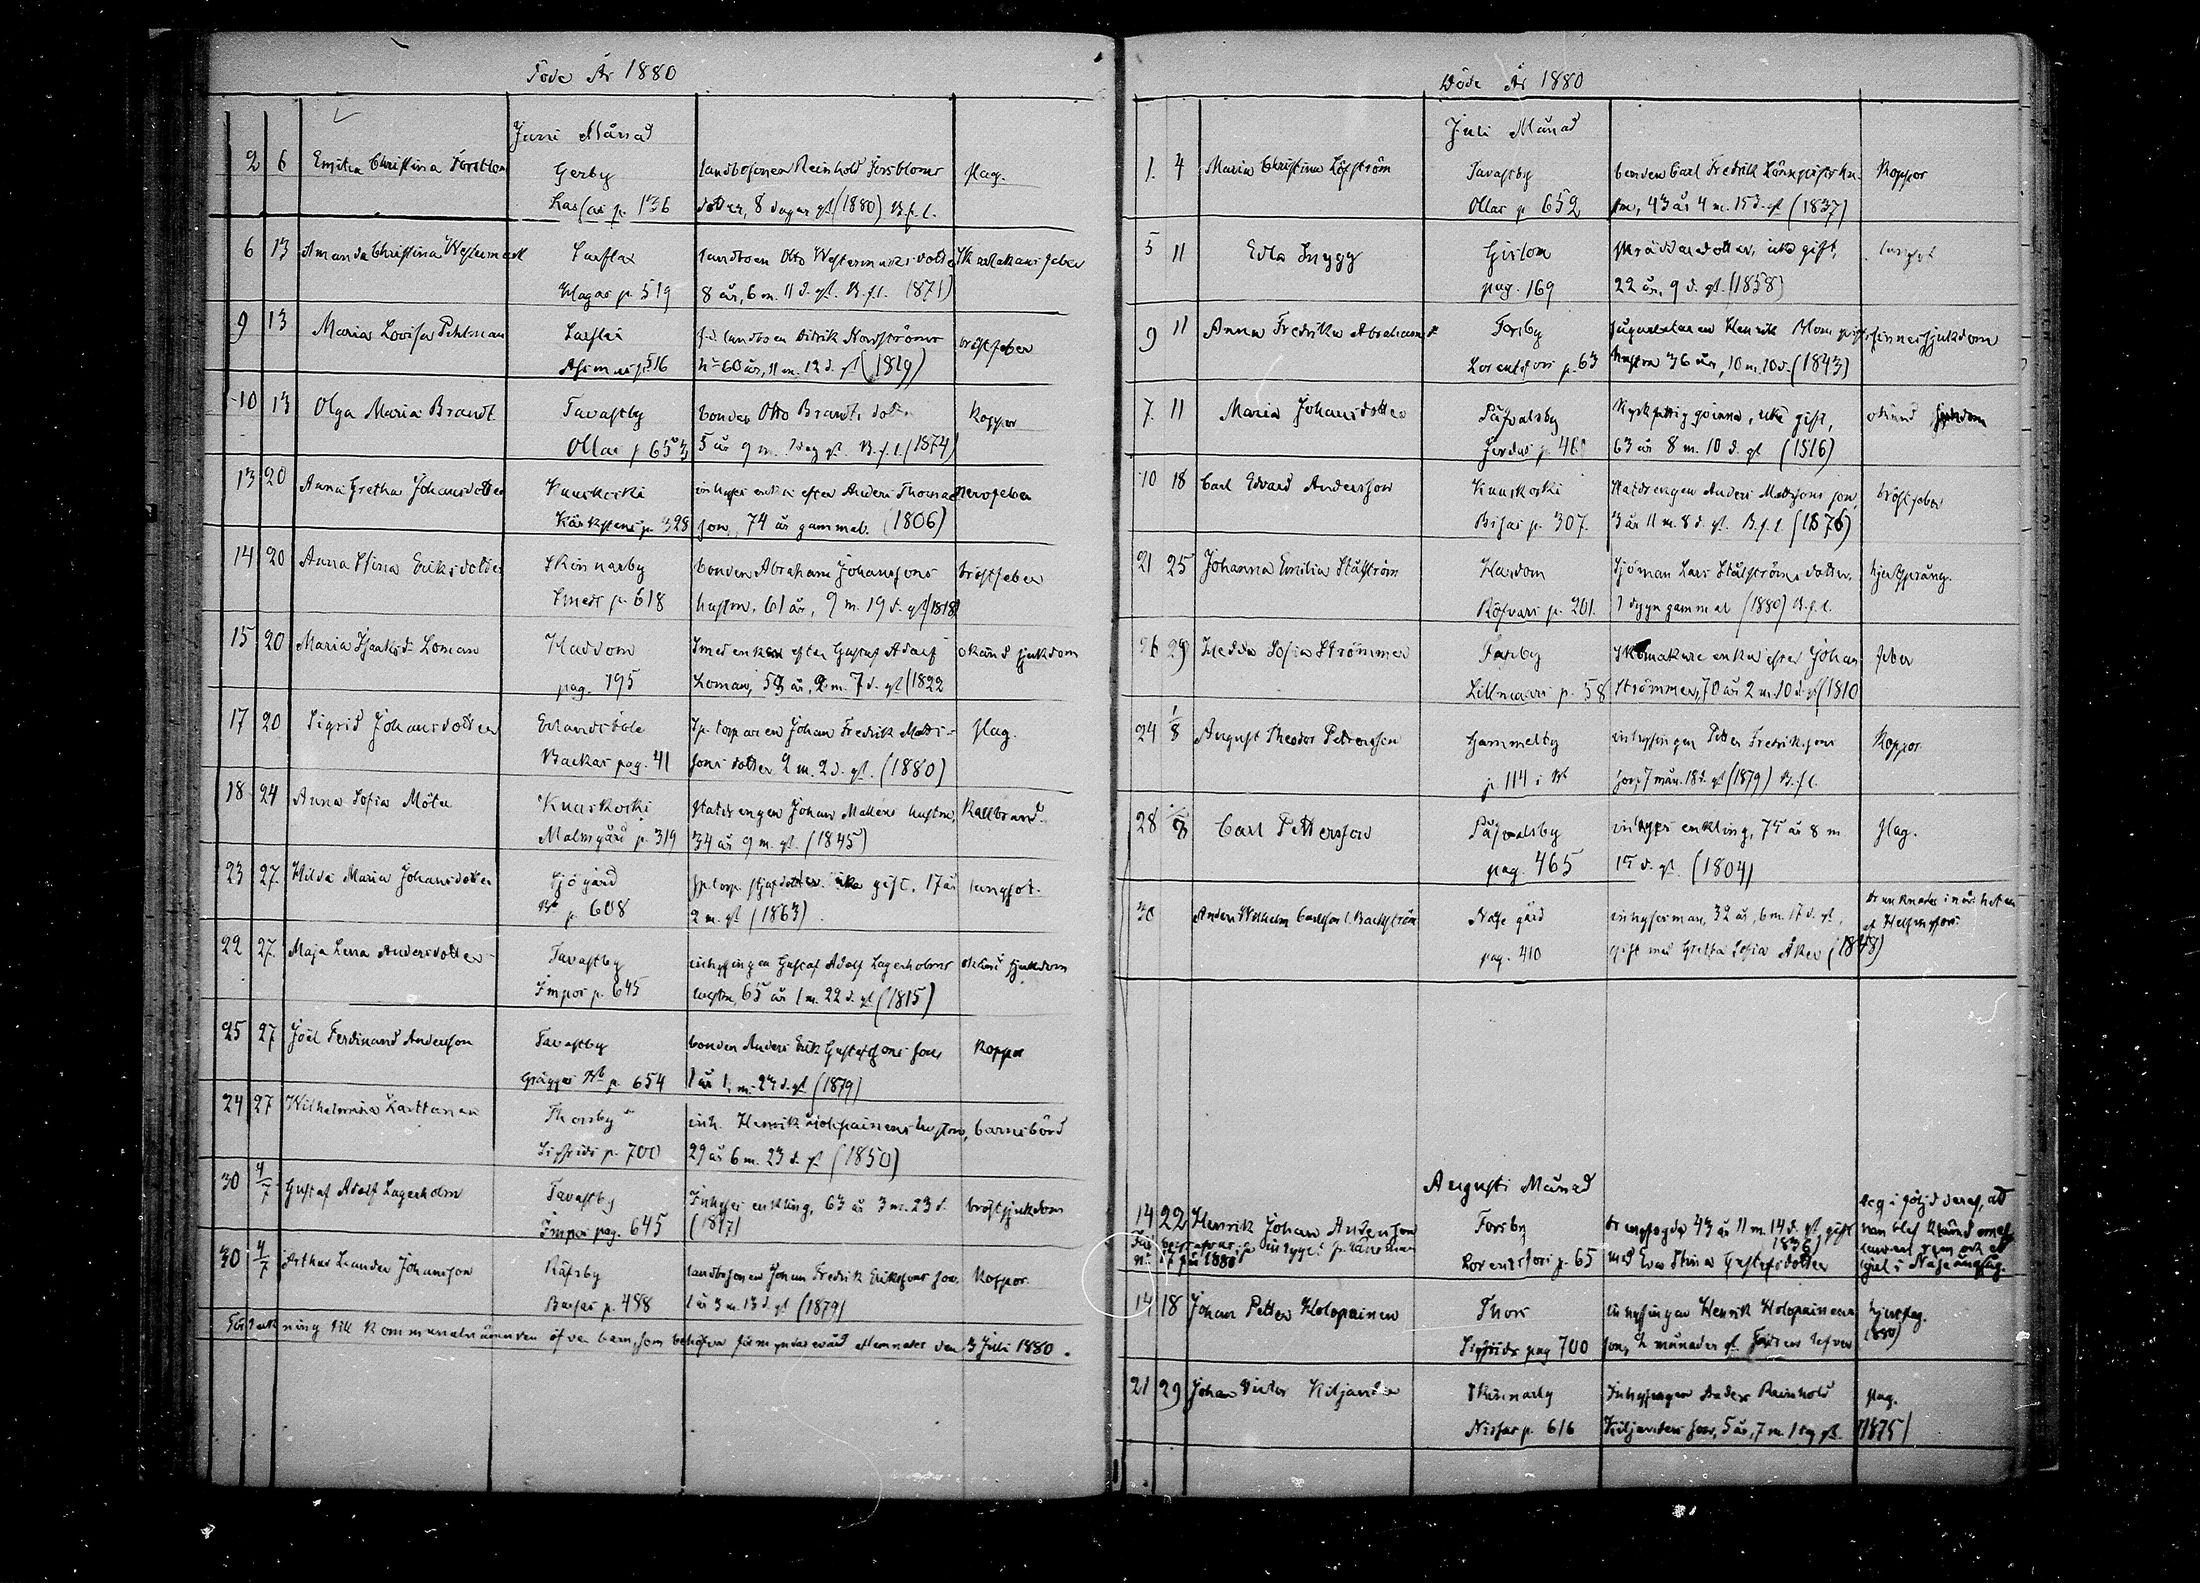 Döde År 1880
Juni Månad
2 6 Emilia Christina Forsblom Gerby landbosonen Reinhold Forsbloms slag.
Lassas p. 136 dotter, 8 dagar gl (1880) B.f.l.
6 13 Amanda Christina Westermark Sarflax landboen Otto Westermarks dotter
Klagas p. 519 8 år, 6 m. 11 d. gl. B.f.l. (1871)
9 13 Maria Lovisa Pihlman Sarflax f.d. landboen Didrik Nordströms bröstfeber
p. 516 h-60 år, 11 m. 12 d. gl (1819)
10 13 Olga Maria Brandt Tavastby bonden Otto Brandts dotter Koppor
Ollas p. 653 5 år 9 m. 1 dag gl. B.f.l. (1874)
13 20 Anna Gretha Johansdotter Kuuskoski inhyses enkan efter Anders Thomas nervfeber
p. 328 son, 74 år gammal. (1806)
14 20 Anna Stina Eriksdotter Skinnarby bonden Abraham Johanssons bröstfeber
Smeds p. 618 hustru, 61 år, 9 m. 19 d. gl (1818)
15 20 Maria Isaksd. Loman Haddom Smedenkan efter Gustaf Adolf okänd sjukdom
pag. 195 Loman, 57 år, 2 m. 7 d. gl (1822
17 20 Sigrid Johansdotter Erlandsböle Sp. torparen Johan Fredrik Matts- slag.
Backas pag. 41 sons dotter 2 m. 2 d. gl. (1880)
18 24 Anna Sofia Möller Kuuskoski statdrengen Johan hustru, Kallbrand
Malmgård p. 319 34 år 9 m. gl. (1845)
23 27. Hilda Maria Johansdotter Sjögård sp. torp. styfdotter. icke gift. 17 år lungsot.
Bb p. 608 2 m. gl (1863).
22 27. Maja Lena Andersdotter Tavastby inhysingen Gustaf Adolf Lagerholms okänd sjukdom
Impos p. 645 hustru, 65 år 1 m. 22 d. gl (1815)
25 27 Joel Ferdinand Andersson Tavastby bonden Anders Erik Gustafssons son Koppor
Bb p. 654 1 år 1 m. 27 d. gl (1879)
24 27 Wilhelmina Karttunen Thorsby inh. Henrik Holopainens hustru, barnsbörd
Sigfrids p. 700 29 år 6 m. 23 d. gl (1850)
30 4/7 Gustaf Adolf Lagerholm Tavastby Inhyses enkling, 63 år 3 m. 23 d. bröstsjukdom
Impos pag. 645 (1817)
30 4/7 Arthur Leander Johansson Räfsby landbosonen Johan Fredrik Erikssons son. Koppor.
Bassas p. 488 1 år 3 m. 13 d. gl (1879)
Förteckning till kommunalnämnden öfver barn, som behöfva förmyndarevård aflemnades den 3 Juli 1880.
Döde År 1880
Juli Månad
1. 4 Maria Christina Löfström Tavastby bonden Carl Fredrik hu- Koppor
Ollas p 652 stru, 43 år 4 m. 15 d. gl (1837)
5 11 Edla Snygg Gislom skräddaredotter, icke gift, lungsot
pag. 169 22 år, 9 d. gl. (1858)
9 11 Anna Fredrika Abrahamsd Forsby sågarbetaren Henrik Blomqvists sinnessjukdom
Lorentsfors p. 63 hustru 36 år, 10 m. 10 d. (1843)
7. 11 Maria Johansdotter Påfvalsby Kyrkfattig qvinna, icke gift, okänd sjukdom
p. 46 63 år 8 m. 10 d. gl (1816)
10 18 Carl Edvard Andersson Kuuskoski Statdrengen Anders Mattssons son bröstfeber
Bisas p. 307. 3 år 11 m. 8 d. gl. B.f.l. (1876)
21 25 Johanna Emilia Stålström Haddom Sjöman Lars Stålströms dotter, hjertsprång.
Röfvars p. 201. 1 dygn gammal (1880) B.f.l.
26 29 Hedda Sofia Strömmer Forsby Skomakare enkan efter Johan feber
Lillmars p. 58 Strömmer, 70 år 2 m. 10 d. gl (1810
24 1/8 August Theodor Pettersson Gammelby inhysingen Petter Fredrikssons Koppor.
p. 114 i Bb son, 7 mån. 18 d. gl (1879) B.f.l.
28 /8 Carl Pettersson Påfvalsby inhyses enkling, 75 år 8 m slag.
pag. 465 15 d. gl. (1804)
30 Anders Wilhelm Carlsson l. Backström Näse gård inhysesman, 32 år, 6 m. 17 d. gl, drunknade i närheten
pag. 410 gift med Gretha Sofia Åker (1848) af Helsingfors
Augusti Månad
14 22 Henrik Johan Andersson Forsby drengfogde 43 år 11 m. 14 d. gl, gift
n: 17 1880 Lorentsfors p. 65 med Eva Stina Gustafsdotter 1836)
14 18 Johan Petter Holopainen Thors inhysingen Henrik Holopainens hjertslag.
Sigfrids pag 700 son, 2 månader gl. (1880)
21 29 Johan Victor Kiljander Skinnarby Inhysingen Anders Reinhold slag.
Nissas p. 616 Kiljanders son, 5 år, 7 m. 1 dg gl. (1875)